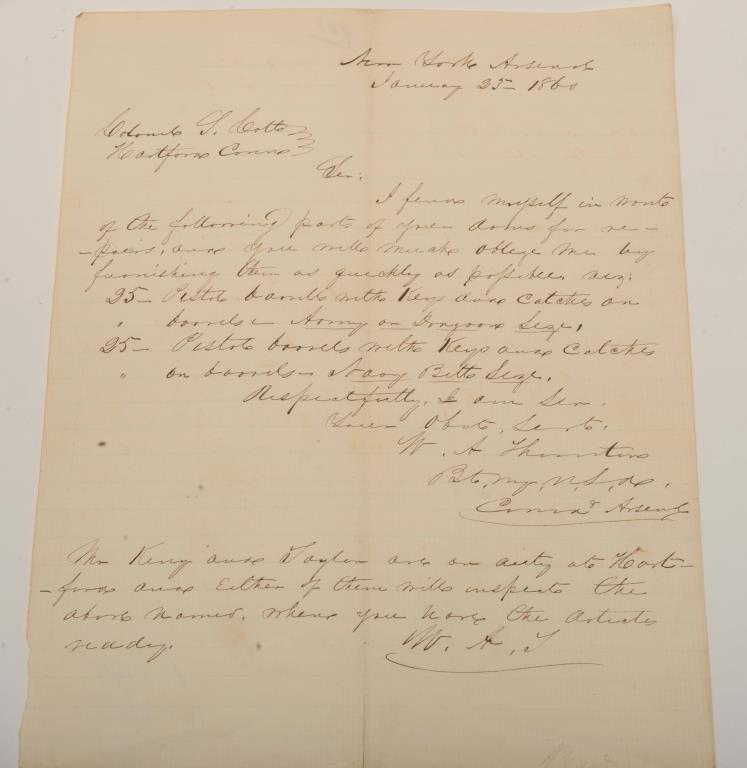 New York Arsenal
January 25 - 1860
Colonel S. Colt
Hartford Conne
Sir:
I find myself in want
of the following parts of your arms for re-
-pairs, and you will much oblige me by
furnishing them as quickly as possible, viz:
25- Pistol barrels with Keys and Catches on
" barrels - Army or Dragoon Size,
25- Pistol barrels with Keys and Catches
" on barrels - Navy Belt Size.
Respectfully, I am Sir,
Your Obdt. Servt.
W. A. Thornton
Bt. Maj. U.S.A.
Comdg Arsenal
Mr King and Taylor are on duty at Hart-
-ford and Either of them will inspect the
above named, when you have the articles
ready.
W. A. T